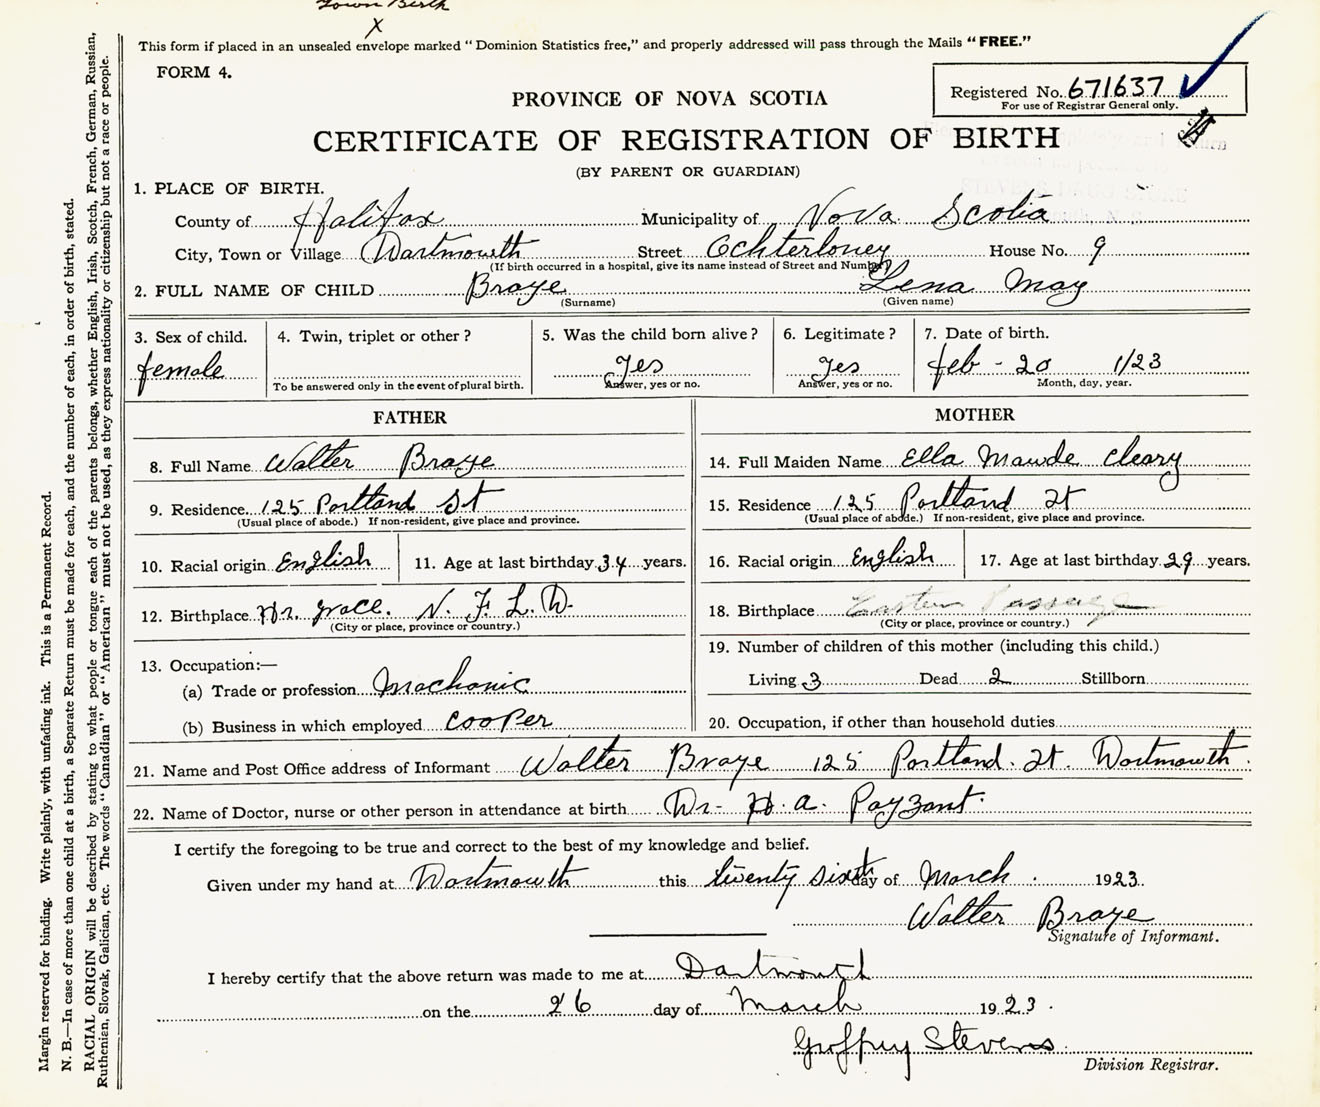 Town Birth
X
This form if placed in an unsealed envelope marked "Dominion Statistics free," and properly addressed will pass through the Mails "FREE."
FORM 4.
Registered No. 671637
For use of Registrar General only.
PROVINCE OF NOVA SCOTIA
CERTIFICATE OF REGISTRATION OF BIRTH
(BY PARENT OR GUARDIAN)
1. PLACE OF BIRTH.
County of Halifax Municipality of Nova Scotia
City, Town or Village Dartmouth Street Ochterloney House No. 9
(If birth occurred in a hospital, give its name instead of Street and Number)
2. FULL NAME OF CHILD Braye Lena May
(Surname) (Given name)
3. Sex of child. 4. Twin, triplet or other? 5. Was the child born alive? 6. Legitimate? 7. Date of birth.
female Yes Yes feb - 20 1/23
To be answered only in the event of plural birth. Answer, yes or no. Answer, yes or no. Month, day, year.
FATHER
8. Full Name Walter Braye
9. Residence 125 Portland St
(Usual place of abode.) If non-resident, give place and province.
10. Racial origin English 11. Age at last birthday 34 years.
12. Birthplace Hr. Grace. N. F. L. D.
(City or place, province or country.)
13. Occupation:—
(a) Trade or profession Machanic
(b) Business in which employed cooper
MOTHER
14. Full Maiden Name Ella Mawde Cleary
15. Residence 125 Portland St
(Usual place of abode.) If non-resident, give place and province.
16. Racial origin English 17. Age at last birthday 29 years.
18. Birthplace Eastern Passage
(City or place, province or country.)
19. Number of children of this mother (including this child.)
Living 3 Dead 2 Stillborn
20. Occupation, if other than household duties
21. Name and Post Office address of Informant Walter Braye 125 Portland. St. Dartmouth.
22. Name of Doctor, nurse or other person in attendance at birth Dr- H. A. Payzant.
I certify the foregoing to be true and correct to the best of my knowledge and belief.
Given under my hand at Dartmouth this twenty sixth day of March. 1923.
Walter Braye
Signature of Informant.
I hereby certify that the above return was made to me at Dartmouth
on the 26 day of March 1923.
Goffrey Stevens
Division Registrar.
Margin reserved for binding. Write plainly, with unfading ink. This is a Permanent Record.
N. B.—In case of more than one child at a birth, a Separate Return must be made for each, and the number of each, in order of birth, stated.
RACIAL ORIGIN will be described by stating to what people or tongue each of the parents belongs, whether English, Irish, Scotch, French, German, Russian,
Ruthenian, Slovak, Galician, etc. The words "Canadian" or "American" must not be used, as they express nationality or citizenship but not a race or people.